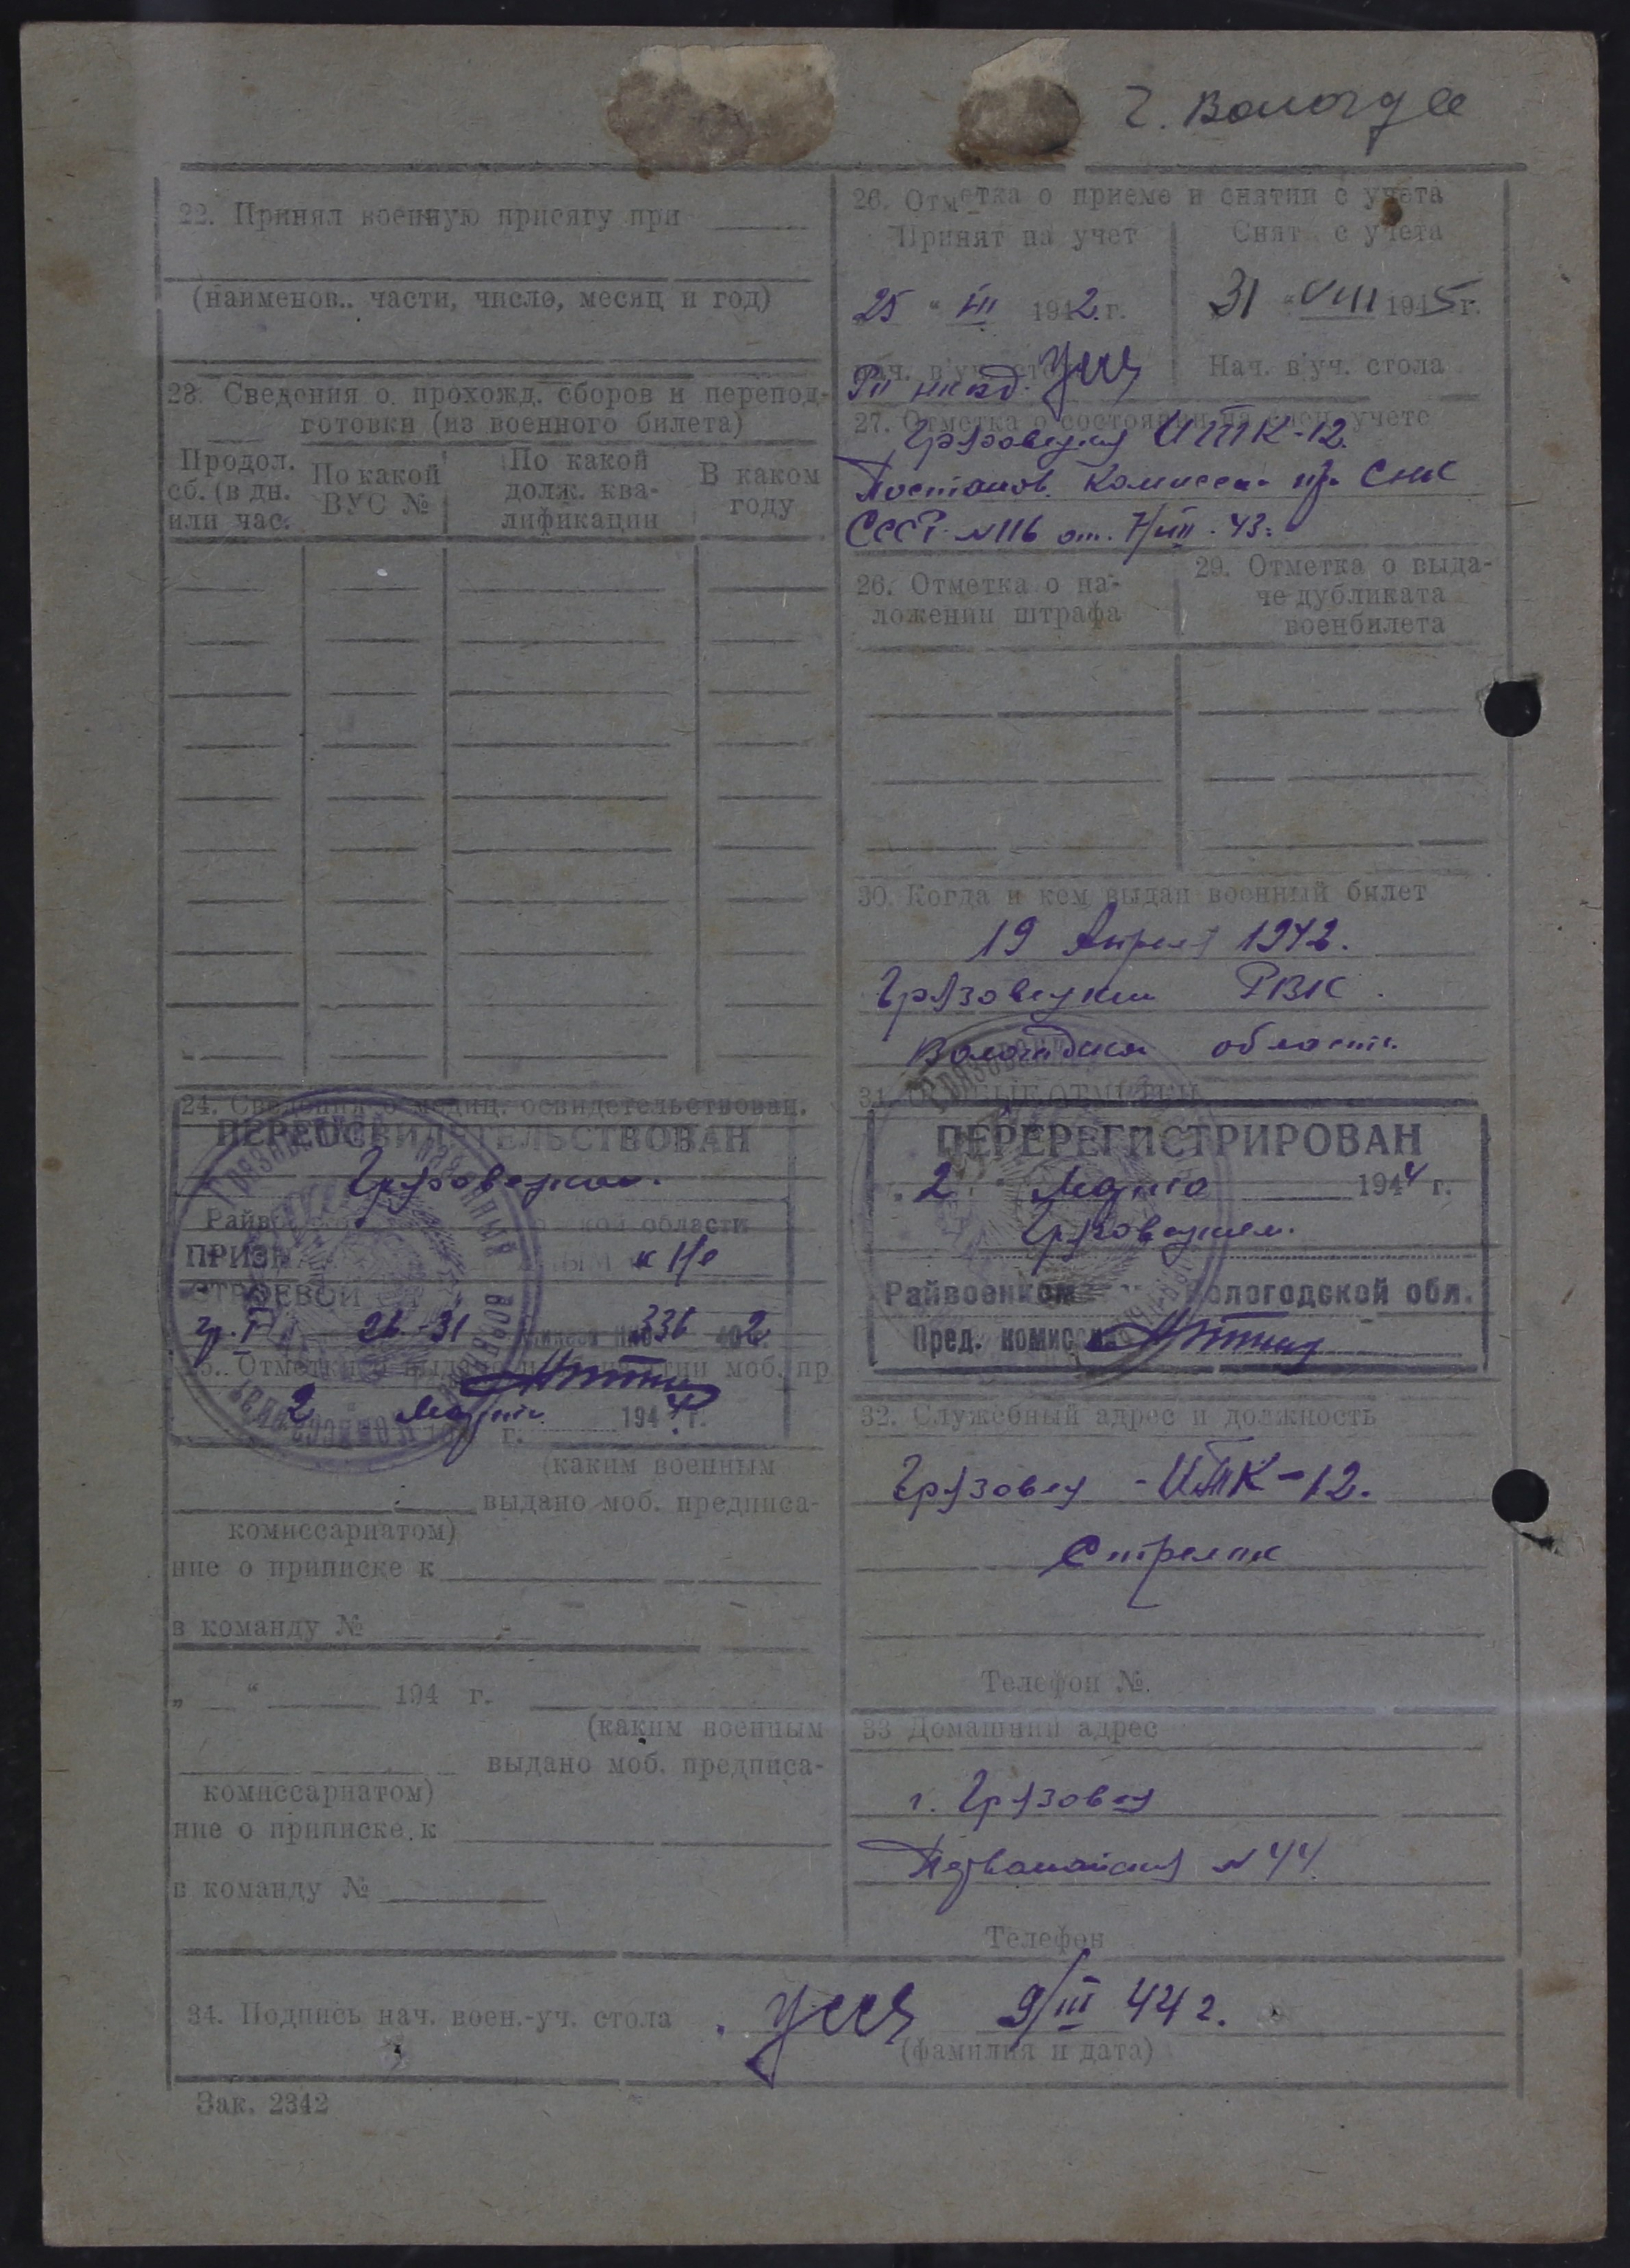 г. Вологде
22. Принял военную присягу при
(наименов.. части, число, месяц и год)
23. Сведения о прохожд. сборов и перепод-
готовки (из военного билета)
Продол. сб. (в дн. или час.
По какой ВУС №
По какой долж. ква-лификации
В каком году
24. Сведения о медиц. освидетельствован.
ПЕРЕОСВИДЕТЕЛЬСТВОВАН
Грязовецким
кой области
СТРОЕВОЙ
гр. I 26-31 336 2
2 Марта 1944 г.
(каким военным
выдано моб. предписа-
комиссариатом)
ние о приписке к
в команду №
„ “ 194 г.
(каким военным
выдано моб. предписа-
комиссариатом)
ние о приписке к
в команду №
26. Отметка о приеме и снятии с учета
Принят на учет
Снят с учета
25 “ III 1942 г.
31 “ VIII 1945 г.
Нач. в'уч. стола
27. Отметка о состоянии на воен. учете
ИТК-12.
Постанов. Комисси пр. СНК
СССР №116 от. 7/VIII. 43г
26. Отметка о на-
ложении штрафа
29. Отметка о выда-
че дубликата
военбилета
30. Когда и кем выдан военный билет
19 Апреля 1942.
Грязовецким РВК.
Вологодская область.
31.
ПЕРЕРЕГИСТРИРОВАН
2 Марта 1944 г.
Грязовецким.
Райвоенком Вологодской обл.
Пред. комиссии
32. Служебный адрес и должность
Грязовец - ИТК-12.
Стрелок
Телефон №.
33 Домашний адрес
г. Грязовец
Первомайская №44
Телефон
34. Подпись нач. воен.-уч. стола 9/III 44 г.
(фамилия и дата)
Зак. 2342